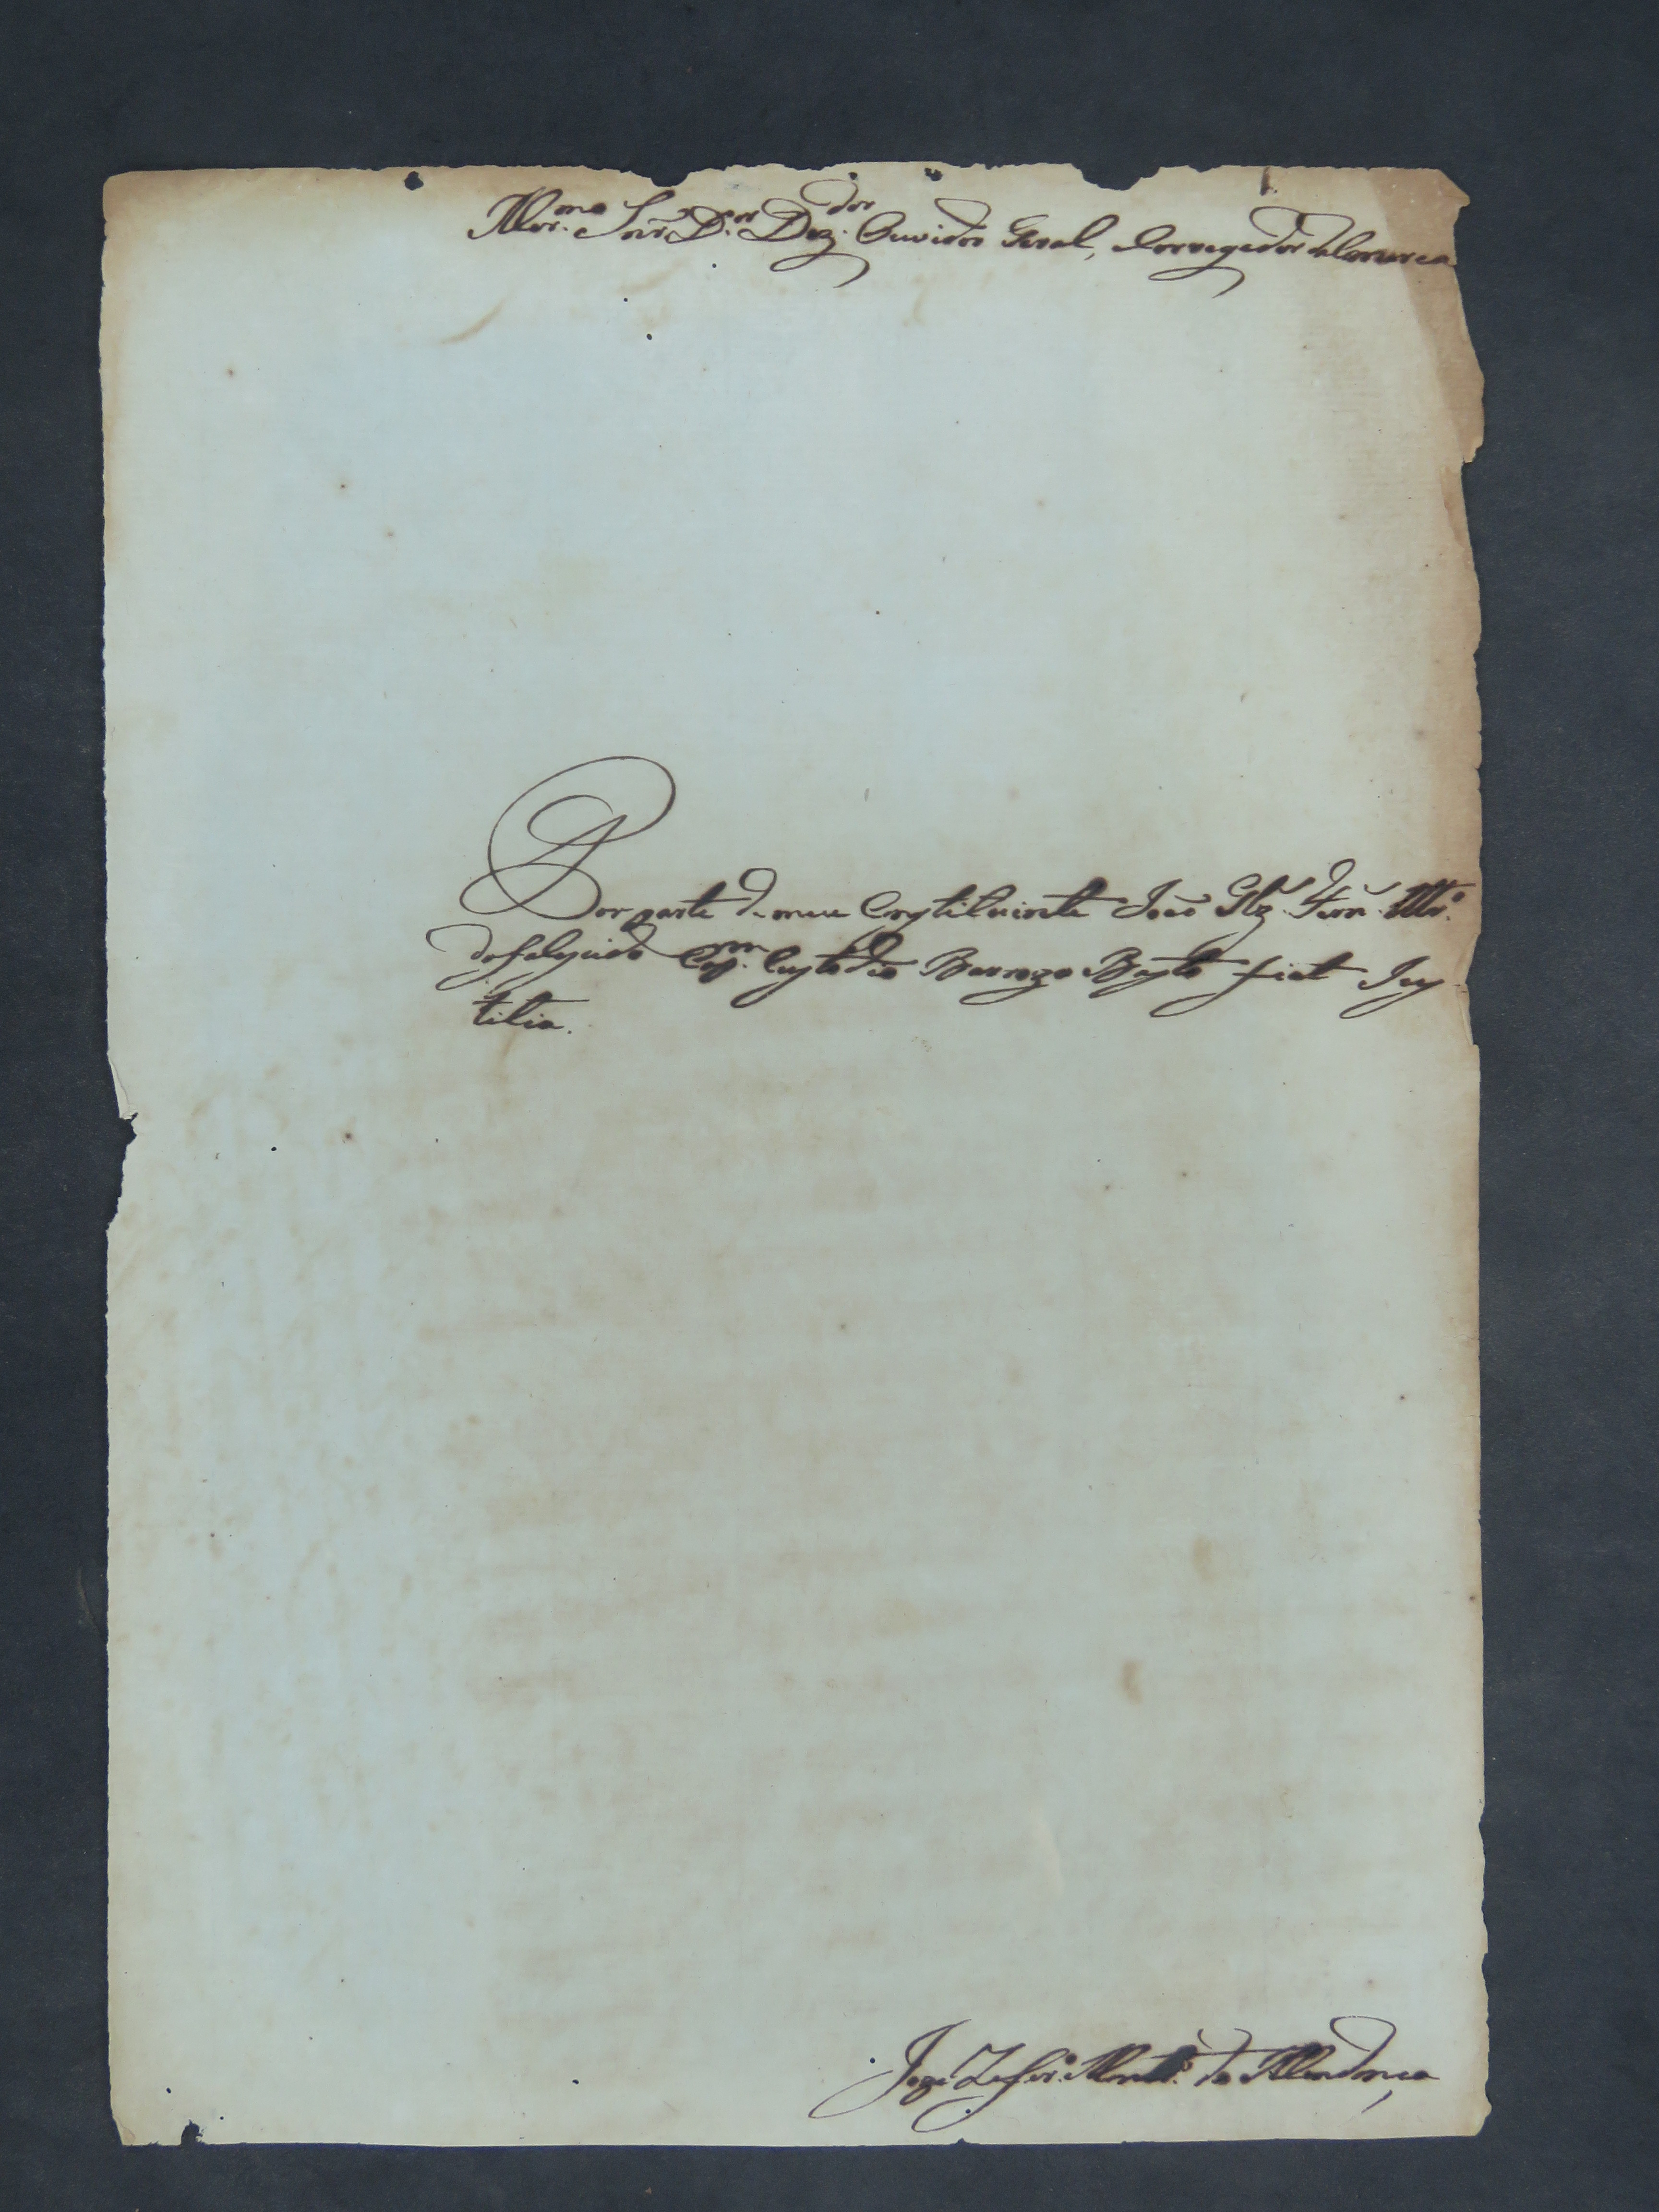 Illmo. Snr. Dor. Dezdor. Ouvidor Geral, Corregedor da Comarca
Por parte de meu Constituinte João Glz.
do falecido Capm. Custodio Barrozo Basto fiat Jus
titia.
Joze de Mendonça